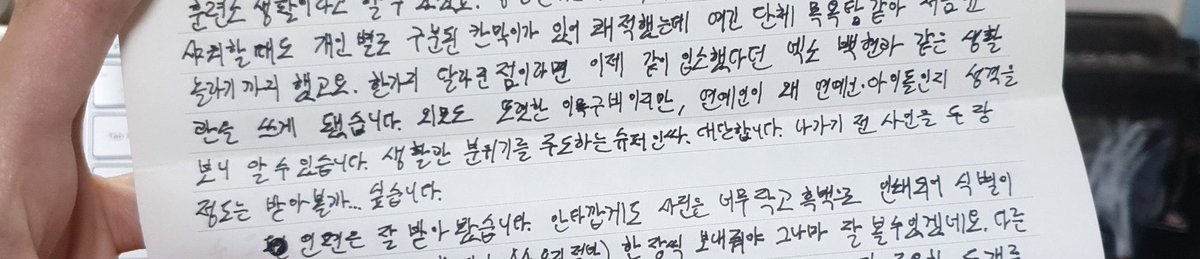 훈련소 생활이라고 할 수
샤워할 때도 개인별로 구분된 칸막이가 있어 쾌적했는데 여긴 단체 목욕탕같아 처음엔
놀라기까지 했고요. 한가지 달라진 점이라면 이제 같이 입소했다던 엑소 백현과 같은 생활
관을 쓰게 됐습니다. 외모도 또렷한 이목구비이지만, 연예인이 왜 연예인·아이돌인지 성격을
보니 알 수 있습니다. 생활관 분위기를 주도하는 슈퍼인싸. 대단합니다. 나가기 전 사인을 두 장
정도는 받아볼까... 싶습니다.
인편은 잘 받아 봤습니다. 안타깝게도 사진은 너무 작고 흑백으로 인쇄되어 식별이
한 장씩 보내줘야 그나마 잘 볼 수 있겠네요. 다른